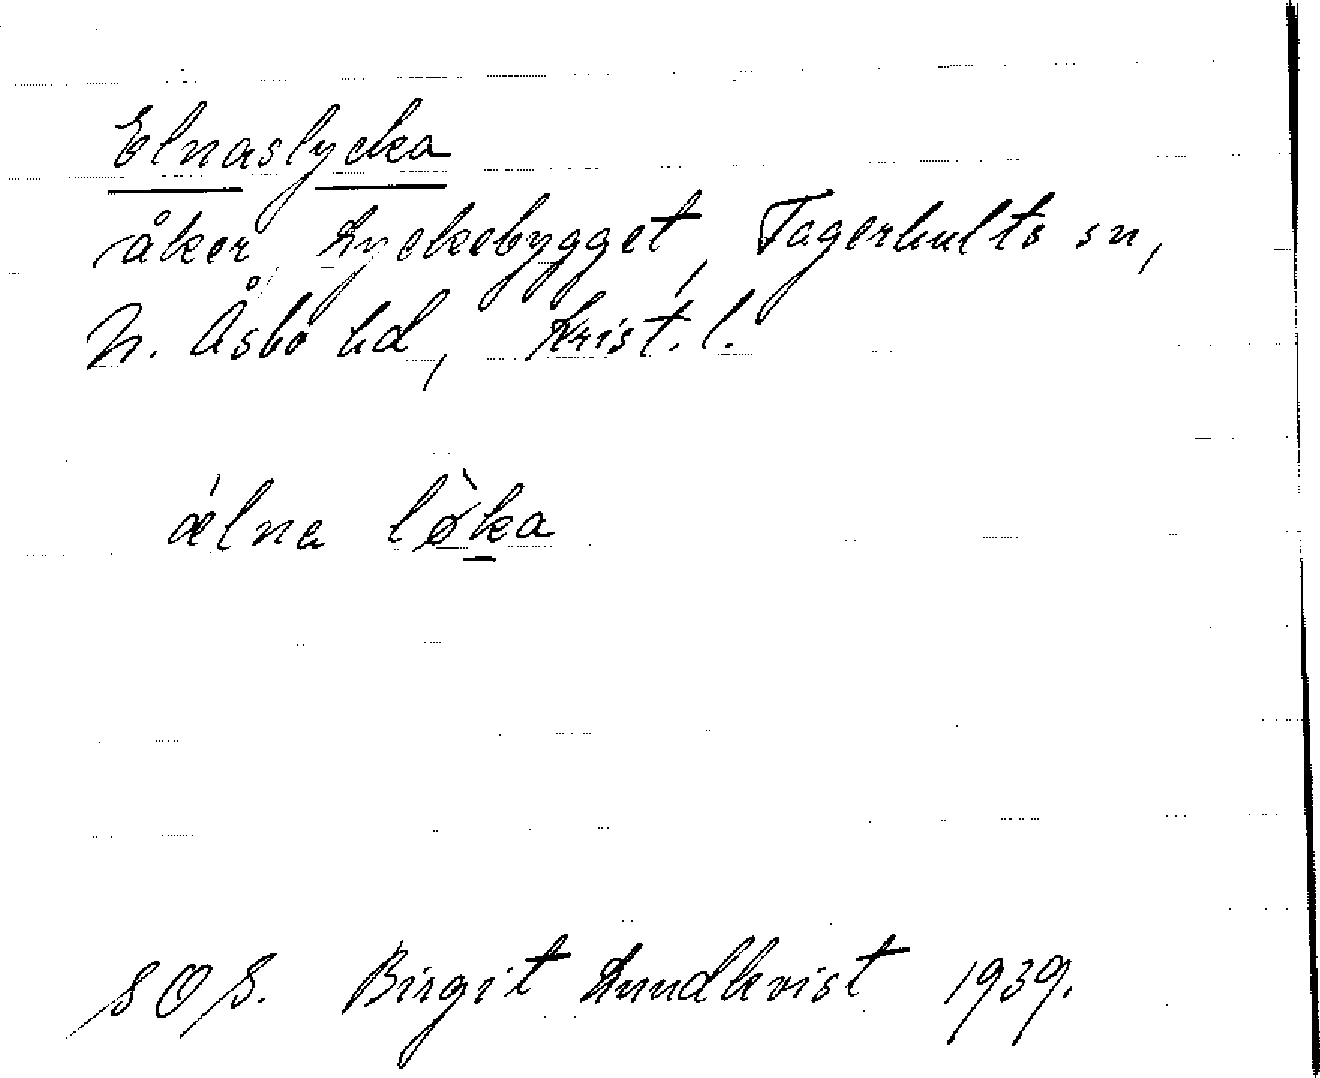 Elnaslycka
åker, Lyckebygget, Fagerhults sn,
N. Åsbo hd, Krist. l.
ǽlna lø̀ka
SOS. Birgit Lundkvist 1939.